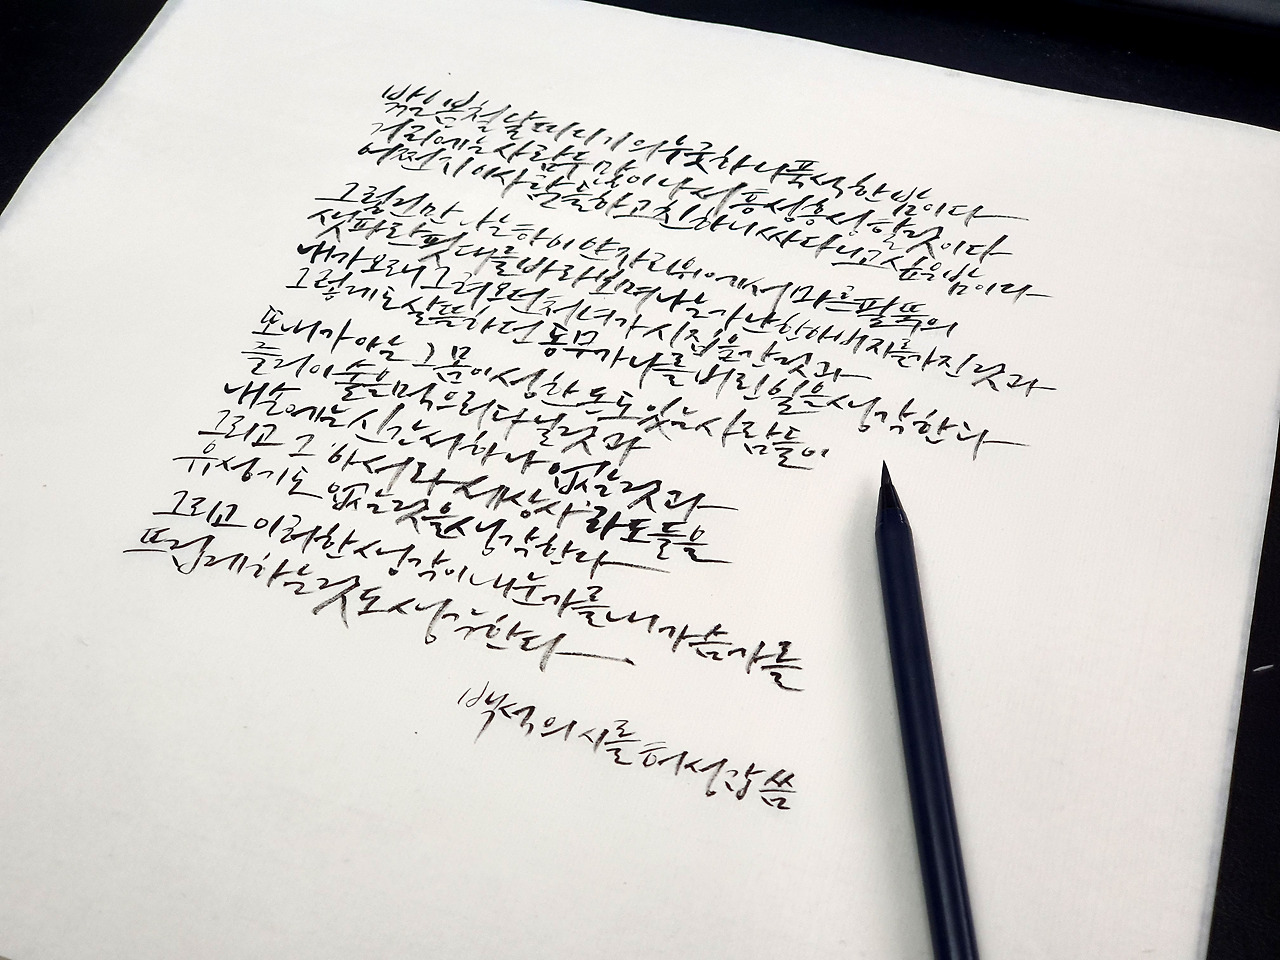 밖은 봄철날 따디기의 누긋하니 푹석한 밤이다
거리에는 사람두 많이 나서 흥성흥성 할 것이다
어쩐지 이 사람들하고 친하니 싸다니고 싶은 밤이다
그렇건만 나는 하이얀 자리 위에서 마른 팔뚝의
샛파란 핏대를 바라보며 나는 가난한 아버지를 가진 것과
내가 오래 그려오던 처녀가 시집을 간 것과
그렇게도 살뜰하던 동무가 나를 버린 일을 생각한다
또 내가 아는 그 몸이 성하 돈도 있는 사람들이
즐거이 술을 먹으러 다닐 것과
내 손에는 신간서 하나 없는 것과
그리고 그 '아서라 세상사' 라도 들을
유성기도 없는 것을 생각한다
그리고 이러한 생각이 내 눈가를 내 가슴가를
뜨겁게 하는 것도 생각한다
백석의 시를 허성갑 씀